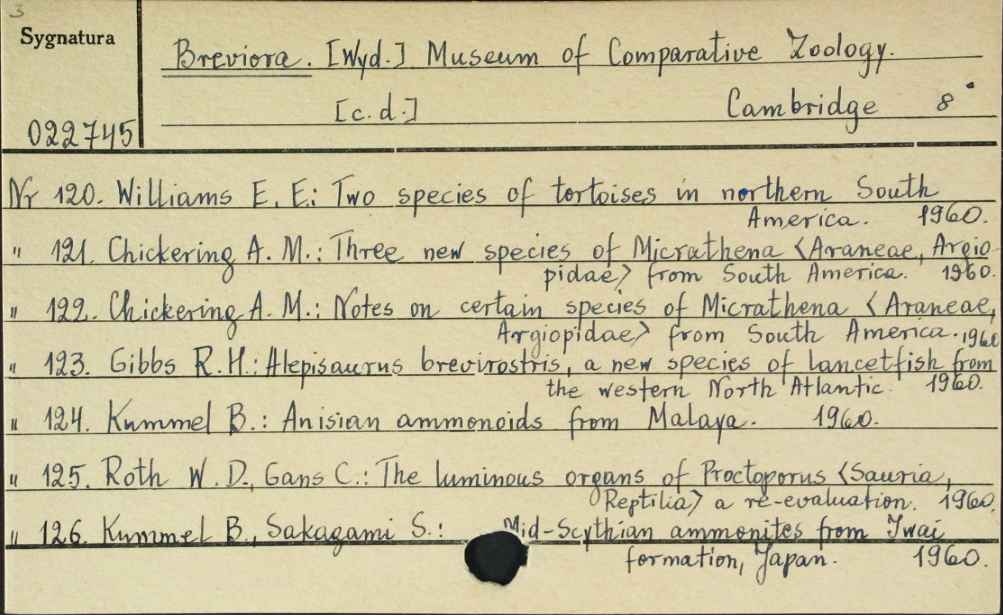 3
Sygnatura
Breviora. [Wyd.] Museum of Comparative Zoology.
[c.d.] Cambridge 8°
022745
Nr 120. Williams E. E.: Two species of tortoises in northern South
America. 1960.
" 121. Chickering A. M.: Three new species of Micrathena <Araneae, Argio
pidae> from South America. 1960.
" 122. Chickering A. M.: Notes on certain species of Micrathena <Araneae,
Argiopidae> from South America. 1960
" 123. Gibbs R. H.: Alepisaurus brevirostris, a new species of lancetfish from
the western North Atlantic. 1960.
" 124. Kummel B.: Anisian ammonoids from Malaya. 1960.
" 125. Roth W. D., Gans C.: The luminous organs of Proctoporus <Sauria,
Reptilia> a re-evaluation. 1960.
" 126. Kummel B., Sakagami S.: Mid-Scythian ammonites from Iwai
formation, Japan. 1960.